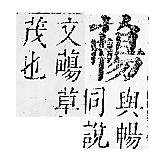 䕋
與暢
同說
文䕋草
茂也